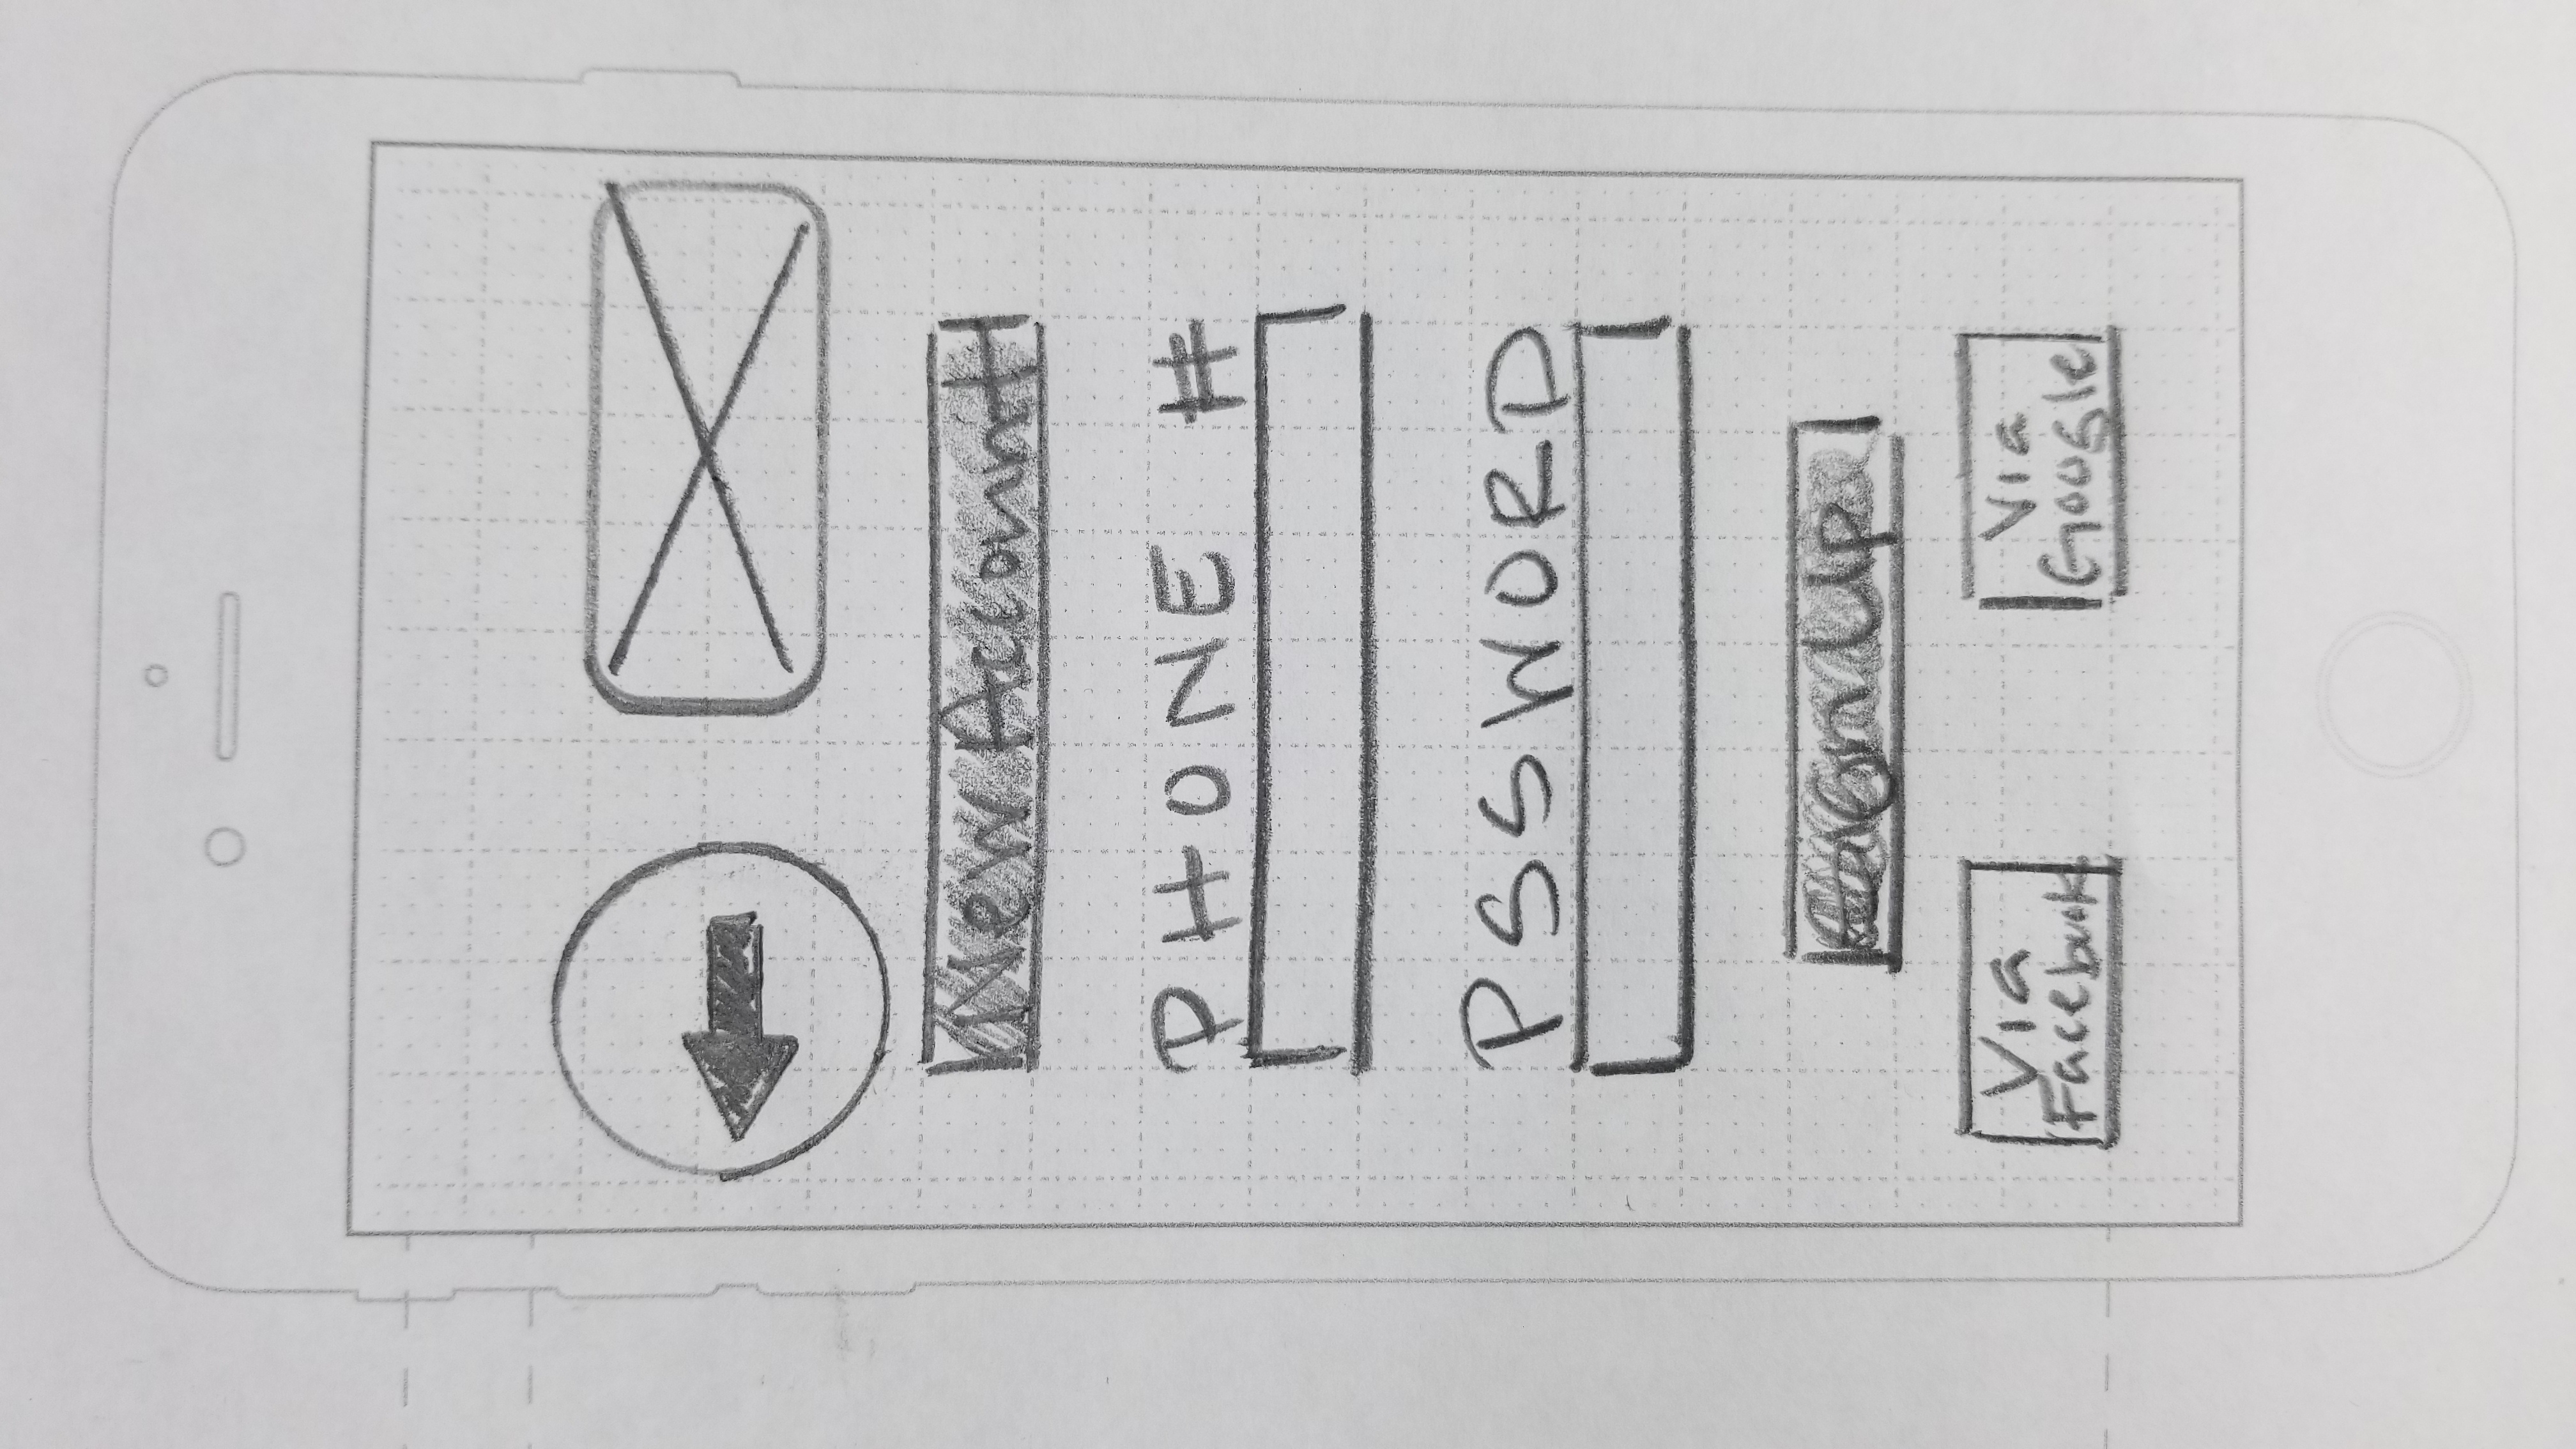 New Account
PHONE #
PSSWORD
Sign Up
Via
Facebook
Via
Google